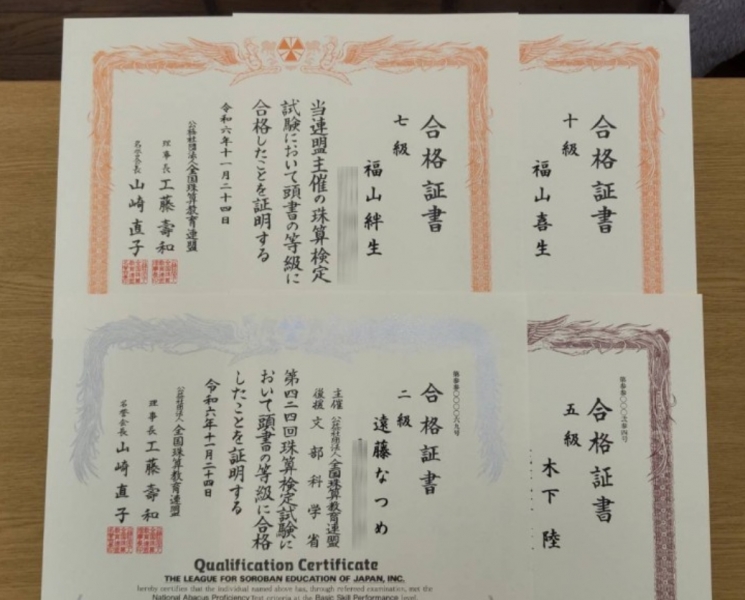 合格証書
七級
福山絆生
当連盟主催の珠算検定
試験において頭書の等級に
合格したことを証明する
令和六年十一月二十四日
公益社団法人全国珠算教育連盟
理事長 工藤壽和
名誉会長 山崎直子
合格証書
十級
福山喜生
合格証書
二級
遠藤なつめ
主催 公益社団法人全国珠算教育連盟
後援 文部科学省
第四二四回珠算検定試験に
おいて頭書の等級に合格
したことを証明する
令和六年十一月二十四日
公益社団法人全国珠算教育連盟
理事長 工藤壽和
名誉会長 山崎直子
Qualification Certificate
THE LEAGUE FOR SOROBAN EDUCATION OF JAPAN, INC.
hereby certifies that the individual named above has, through refereed examination, met the
National Abacus Proficiency Test criteria at the Basic Skill Performance level.
合格証書
五級
木下陸